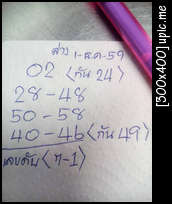 ล่าง 1-ธ.ค-59
02 <กัน 24>
28-48
50-58
40-46 <กัน 49>
เลขดับ <7-1>
[300x400] upic.me